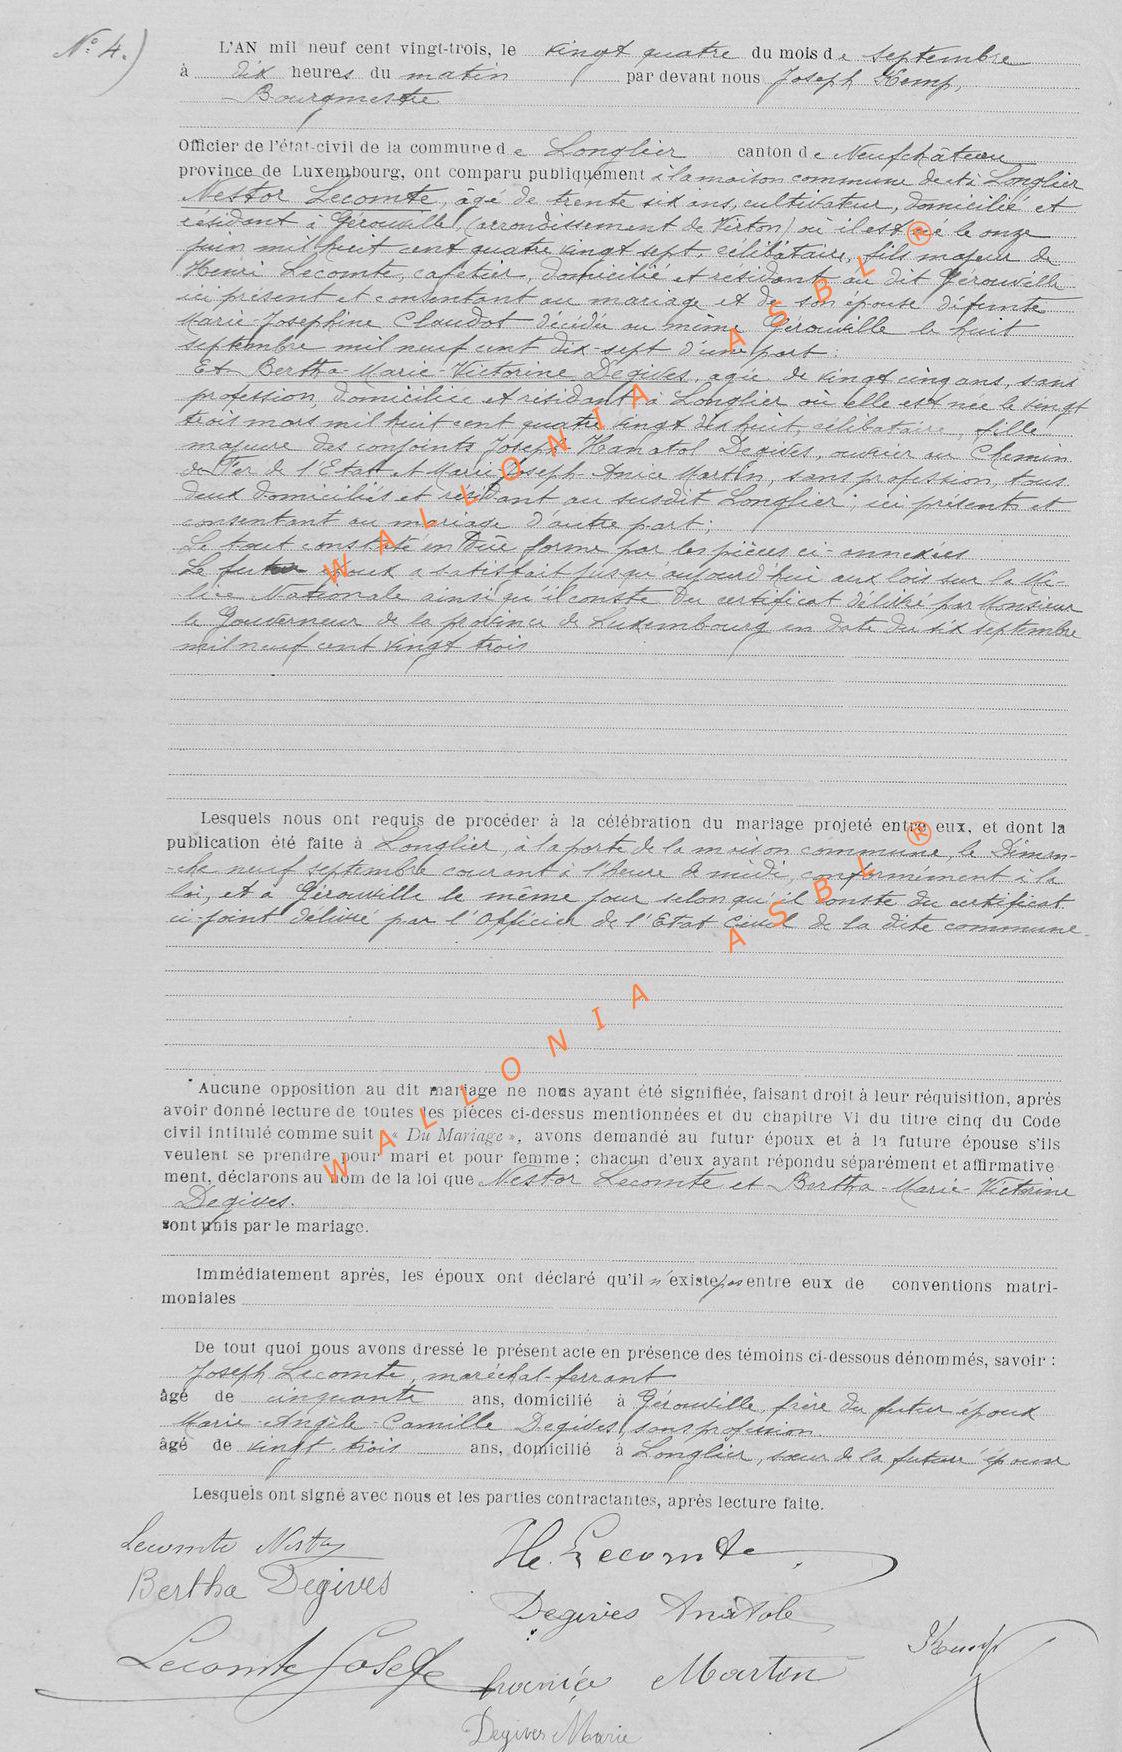 N° 4.)
L'AN mil neuf cent vingt-trois, le vingt quatre du mois de septembre
à dix heures du matin par devant nous Joseph Kemp,
Bourgmestre
Officier de l'état-civil de la commune de Longlier canton de Neufchâteau
province de Luxembourg, ont comparu publiquement à la maison commune de Longlier
Nestor Lecomte, âgé de trente six ans, cultivateur, domicilié et
résidant à Gérouville, (arrondissement de Virton) où il est né le onze
juin mil huit cent quatre vingt sept, célibataire, fils majeur de
Henri Lecomte, cafetier, domicilié et résidant au dit Gérouville
ici présent et consentant au mariage et de son épouse défunte
Marie-Joséphine Claudot décédée au même Gérouville le huit
septembre mil neuf cent dix-sept d'une part:
Et Bertha-Marie-Victorine Degives, agée de vingt cinq ans, sans
profession, domiciliée et résidant à Longlier où elle est née le vingt
trois mars mil huit cent quatre vingt dix huit, célibataire, fille
majeure des conjoints Joseph Hanatol Degives, ouvrier au Chemin
de Fer de l'Etat et Marie-Joseph- Martin, sans profession, tous
deux domiciliés et résidant au susdit Longlier; ici présents et
consentant au mariage d'autre part;
Le tout constaté en due forme par les pièces ci-annexées
Le futur époux a satisfait jusqu'aujourd'hui aux lois sur la Mi-
lice Nationale ainsi qu'il conste du certificat délivré par Monsieur
le Gouverneur de la province de Luxembourg en date du six septembre
mil neuf cent vingt trois
Lesquels nous ont requis de procéder à la célébration du mariage projeté entre eux, et dont la
publication été faite à Longlier, à la porte de la maison commune, le Diman-
-che neuf septembre courant à l'heure de midi, conformément à la
loi, et à Gérouville le même jour selon qu'il conste du certificat
ci-joint délivré par l'Officier de l'Etat Civil de la dite commune
Aucune opposition au dit mariage ne nous ayant été signifiée, faisant droit à leur réquisition, après
avoir donné lecture de toutes les pièces ci-dessus mentionnées et du chapitre VI du titre cinq du Code
civil intitulé comme suit « Du Mariage », avons demandé au futur époux et à la future épouse s'ils
veulent se prendre pour mari et pour femme; chacun d'eux ayant répondu séparément et affirmative
ment, déclarons au nom de la loi que Nestor Lecomte et Bertha-Marie-Victorine
Degives.
sont unis par le mariage.
Immédiatement après, les époux ont déclaré qu'il n'existe pas entre eux de conventions matri-
moniales
De tout quoi nous avons dressé le présent acte en présence des témoins ci-dessous dénommés, savoir :
Joseph Lecomte, maréchal-ferrant
âgé de cinquante ans, domicilié à Gérouville, frère du futur époux
Marie-Angèle-Camille Degives, sans profession
âgé de vingt trois ans, domicilié à Longlier, sœur de la future épouse
Lesquels ont signé avec nous et les parties contractantes, après lecture faite.
Lecomte Nestor
He. Lecomte
Bertha Degives
Degives Anatole
Lecomte Josefe
Martin
Kemp
Degives Marie
WALLONIA ASBL ®
WALLONIA ASBL ®